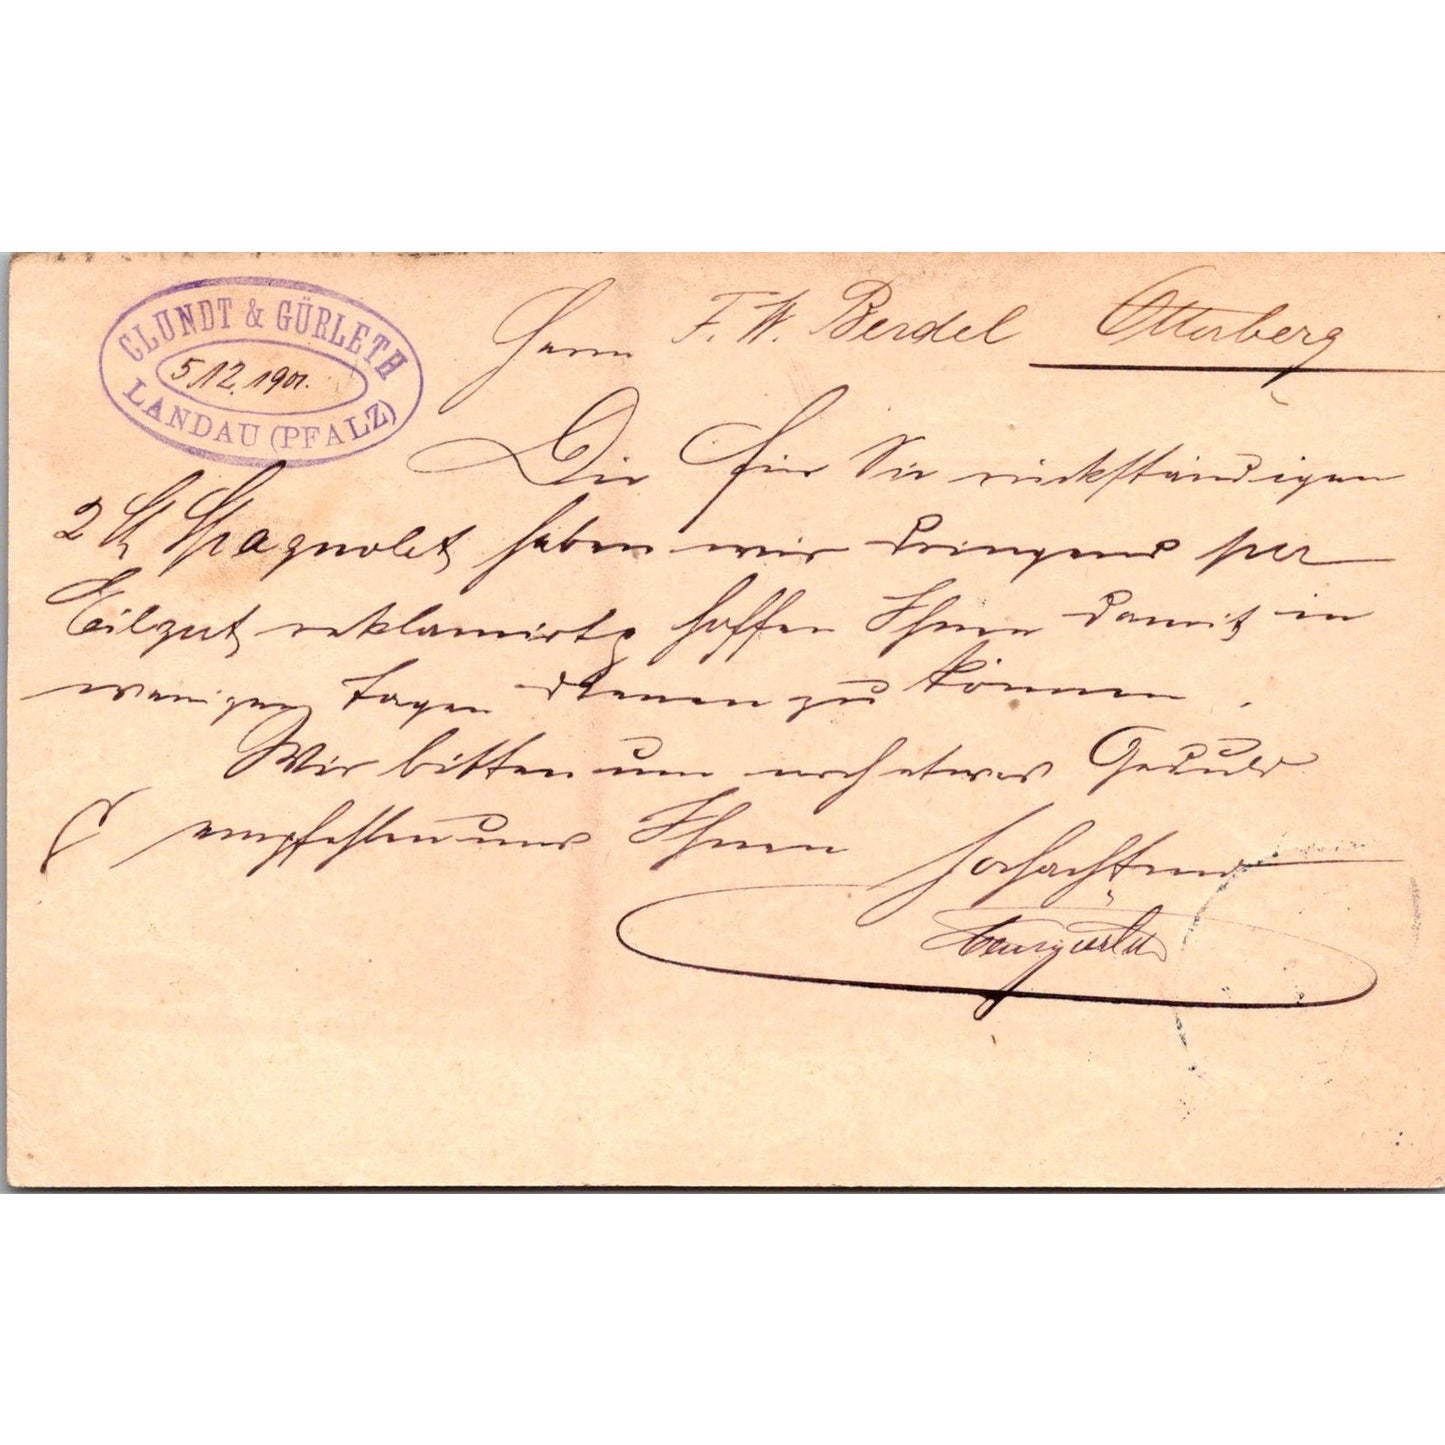 CLUNDT & GÜRLETH
5.12.1901.
LANDAU (PFALZ)
Herrn F. W. Berdel Otterberg
Die für Sie rückständigen
2 St Spagnolet haben wir dringend per
Eilgut reklamirt & hoffen Ihnen damit in
wenigen Tagen dienen zu können.
Wir bitten um noch etwas Geduld
& empfehlen uns Ihnen hochachtend